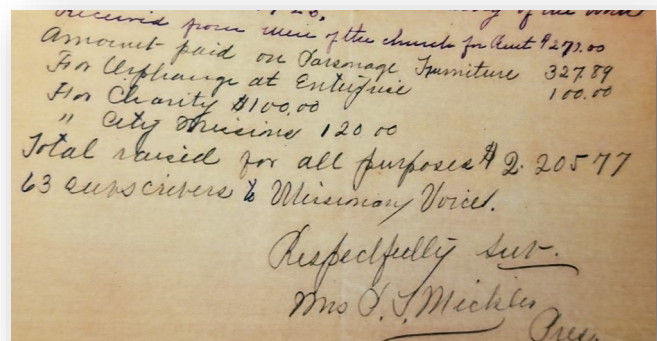 received from men of the church for Rent $270.00
Amount paid on Parsonage Furniture 327.89
For Orphanage at Enterprise 100.00
For Charity $100.00
" City Missions 120 00
Total raised for all purposes $2.20577
63 subscribers to Missionary Voice.
Respectfully sub.
Mrs P. T. Mickler
Pres